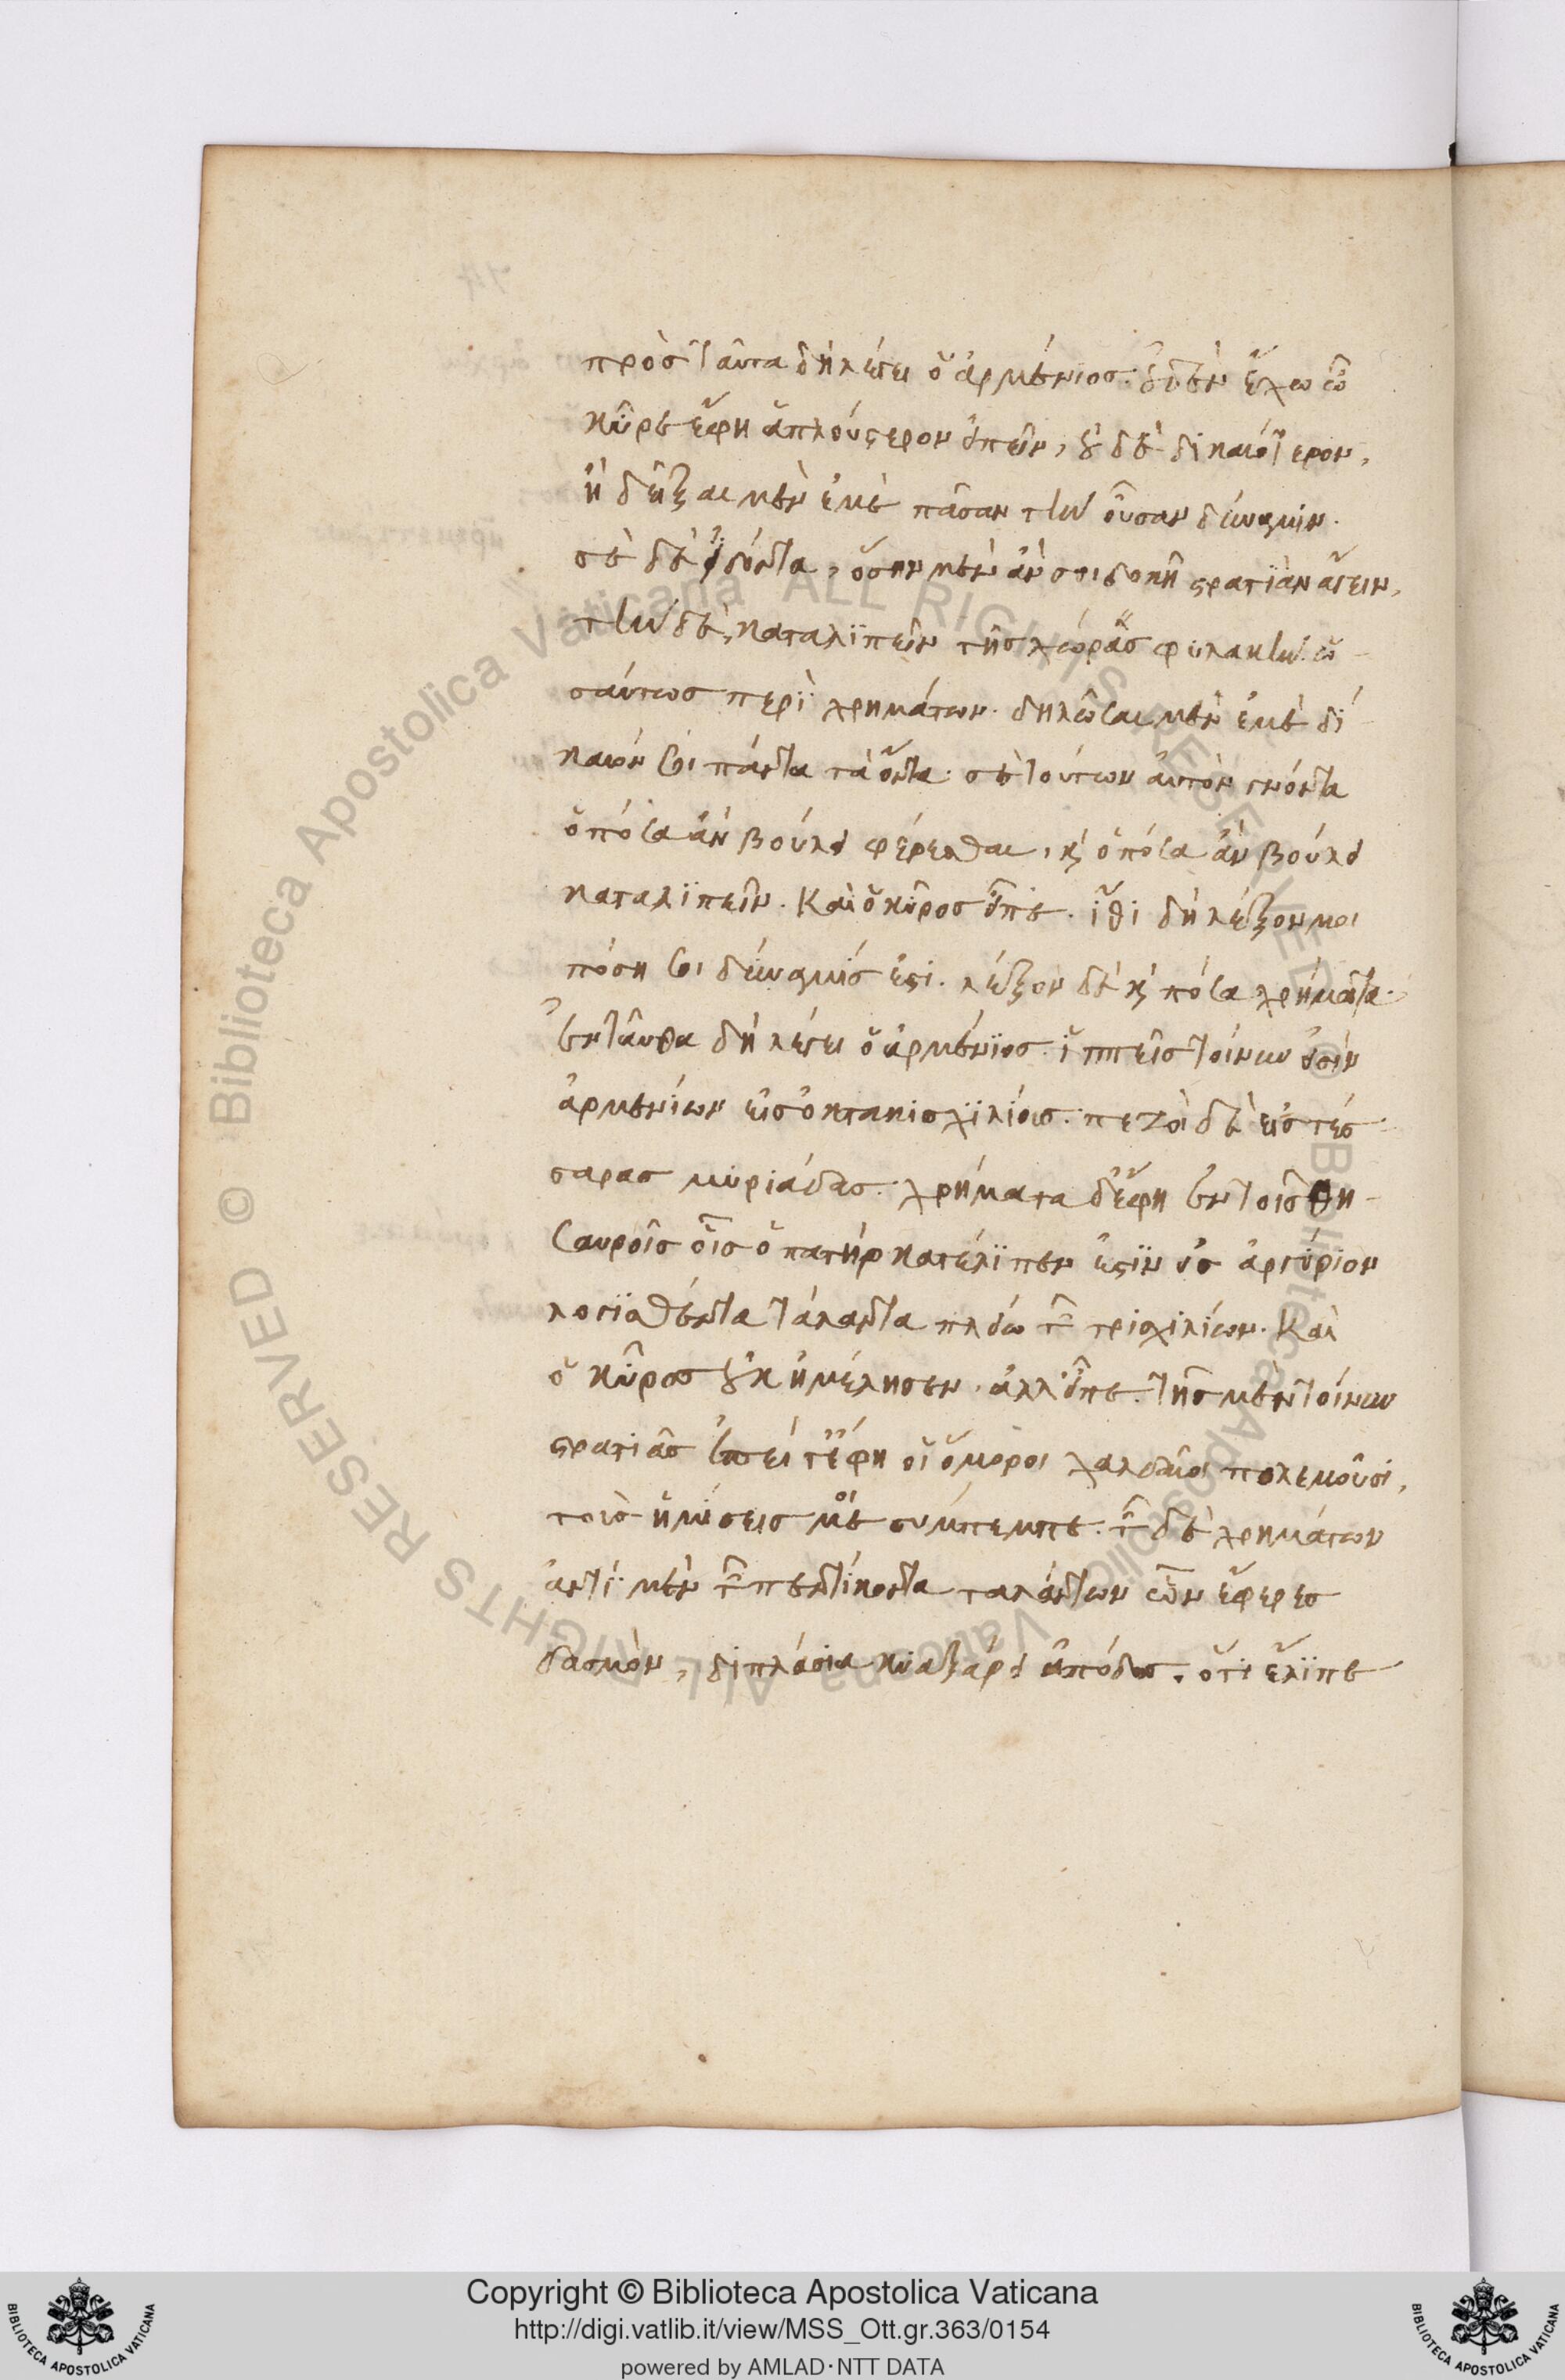 πρὸς ταῦτα δὴ λέγει ὁ ἀρμένιος. οὐδὲν ἔχω ὦ
κῦρε ἔφη ἁπλούστερον εἰπεῖν, οὐδὲ δικαιότερον,
ἢ δεῖξαι μὲν ἐμὲ πᾶσαν τὴν οὖσαν δύναμιν.
σὲ δὲ ἰδόντα, ὅσην μὲν ἄν σοι δοκῇ στρατιὰν ἄγειν,
τὴν δὲ, καταλϊπεῖν τῆς χώρας φυλακήν. ὡ
σαύτως περὶ χρημάτων. δηλῶσαι μὲν ἐμὲ δί
καιόν σοι πάντα τὰ ὄντα. σὲ τούτων αὐτὸν γνόντα
ὁπόσα ἂν βούλει φέρεσθαι, καὶ ὁπόσα ἂν βούλει
καταλϊπεῖν. Καὶ ὁ κῦρος εἶπε. ἴθι δὴ λέξον μοι
πόση σοι δύναμίς ἐστι. λέξον δὲ καὶ πόσα χρήματα.
ἐνταῦθα δὴ λέγει ὁ ἀρμένϊος. ἱππεῖς τοίνυν εἰσὶν
ἀρμενίων εἰς ὀκτακισχϊλίους. πεζοὶ δὲ εἰς τέσ
σαρας μυριάδας. χρήματα δ' ἔφη ἐν τοῖς θη
σαυροῖς οἷς ὁ πατὴρ κατέλϊπεν ἐστὶν εἰς ἀργύριον
λογϊσθέντα τάλαντα πλείω τῶν τρισχιλίων. Καὶ
ὁ κῦρος οὐκ ἠμέλησεν. ἀλλ' εἶπε. τῆς μὲν τοίνυν
στρατιᾶς ἐπεί γ' ἔφη οἱ ὅμοροι χαλδαῖοι πολεμοῦσι,
τοὺς ἡμίσεις μοὶ σύμπεμπε. τῶν δὲ χρημάτων
ἀντὶ μὲν τῶν πεντίκοντα ταλάντων ὧν ἔφερες
δασμὸν, διπλάσια κυαξάρει ἀπόδος. ὅτι ἔλϊπε
Copyright © Biblioteca Apostolica Vaticana
http://digi.vatlib.it/view/MSS_Ott.gr.363/0154
powered by AMLAD·NTT DATA